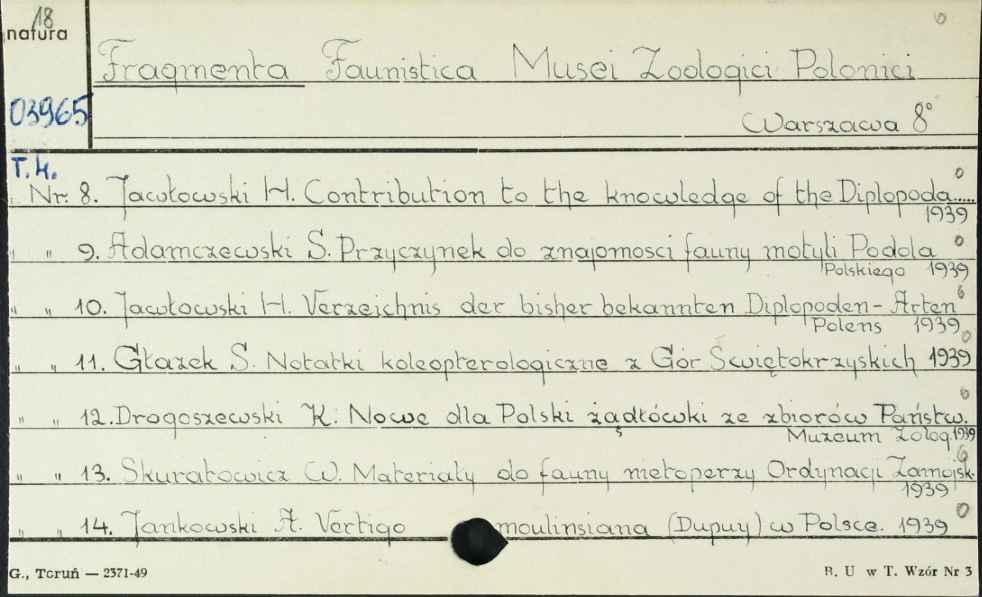 18
natura
Fragmenta Faunistica Musei Zoologici Polonici
03965
Warszawa 8°
T. 4.
Nr. 8. Jawłowski H. Contribution to the knowledge of the Diplopoda.....
1939
" " 9. Adamczewski S. Przyczynek do znajomosci fauny motyli Podola
Polskiego 1939
" " 10. Jawłowski H. Verzeichnis der bisher bekannten Diplopoden-Arten
Polens 1939
" " 11. Głazek S. Notatki koleopterologiczne z Gór Świętokrzyskich 1939
" " 12. Drogoszewski K. Nowe dla Polski żądłówki ze zbiorów Państw.
Muzeum Zolog. 1939
" " 13. Skuratowicz W. Materiały do fauny nietoperzy Ordynacji Zamojsk.
1939
" " 14. Jankowski A. Vertigo moulinsiana (Dupuy) w Polsce. 1939
G., Toruń — 2371-49
B. U w T. Wzór Nr 3